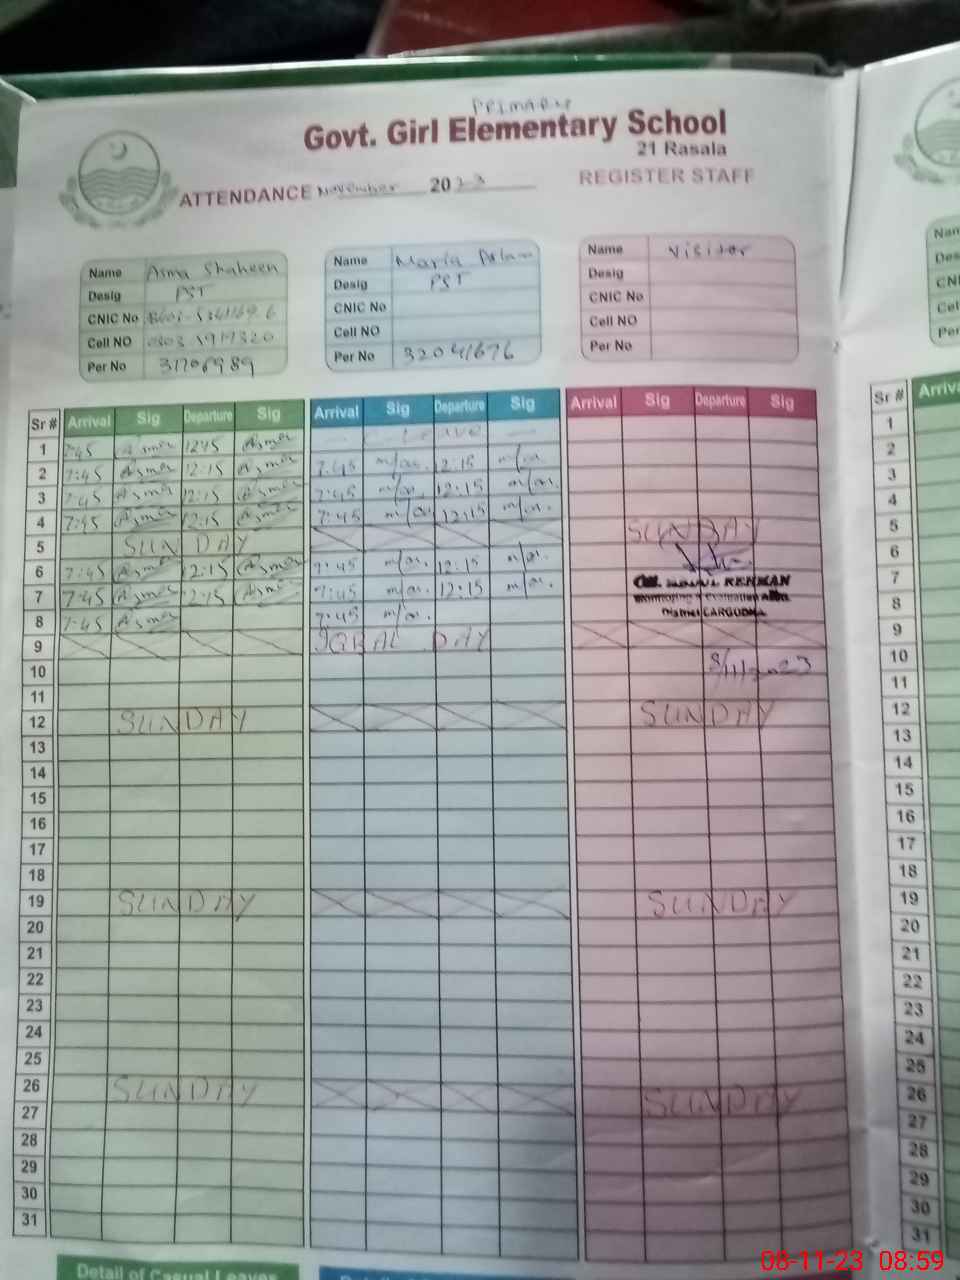 Primary
Govt. Girl Elementary School
21 Rasala
ATTENDANCE November 2023 REGISTER STAFF
Name Asma Shaheen
Desig PST
CNIC No
Cell NO
Per No
Name Maria
Desig PST
CNIC No
Cell NO
Per No 32041676
Name Visitor
Desig
CNIC No
Cell NO
Per No
Sr # Arrival Sig Departure Sig Arrival Sig Departure Sig Arrival Sig Departure Sig Sr #
1 7:45 Asma 12:45 Asma Leave 1
2 7:45 Asma 12:15 Asma 7:45 12:15 2
3 7:45 Asma 12:15 Asma 7:45 12:15 3
4 7:45 Asma 12:15 Asma 7:45 12:15 4
5 SUNDAY SUNDAY 5
6 7:45 Asma 12:15 Asma 7:45 12:15 6
7 7:45 Asma 12:15 Asma 7:45 12:15 REHMAN 7
Monitoring & Evaluation
8 7:45 Asma 7:45 District SARGODHA 8
9 IQBAL DAY 9
10 8/11/2023 10
11 11
12 SUNDAY SUNDAY 12
13 13
14 14
15 15
16 16
17 17
18 18
19 SUNDAY SUNDAY 19
20 20
21 21
22 22
23 23
24 24
25 25
26 SUNDAY SUNDAY 26
27 27
28 28
29 29
30 30
31 31
Detail of Casual Leaves
08-11-23 08:59